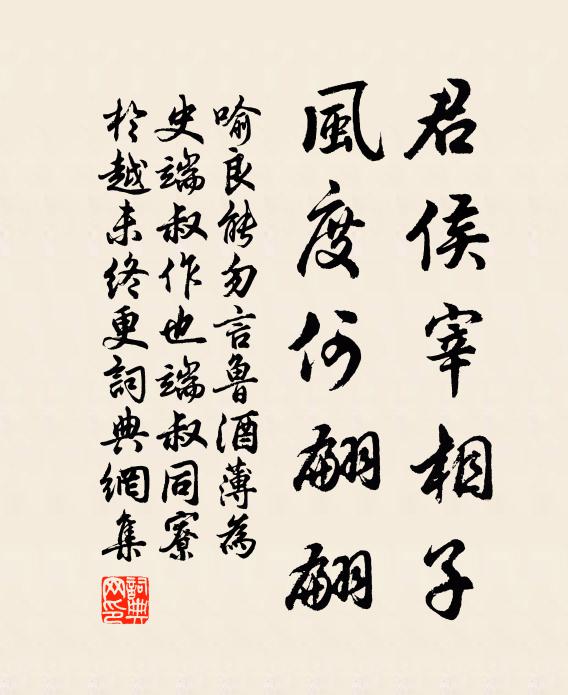 君侯宰相子
風度何翩翩
喻良能勿言魯酒薄為
史端叔作也端叔同寮
於越未終更詞典網集
詞典网印